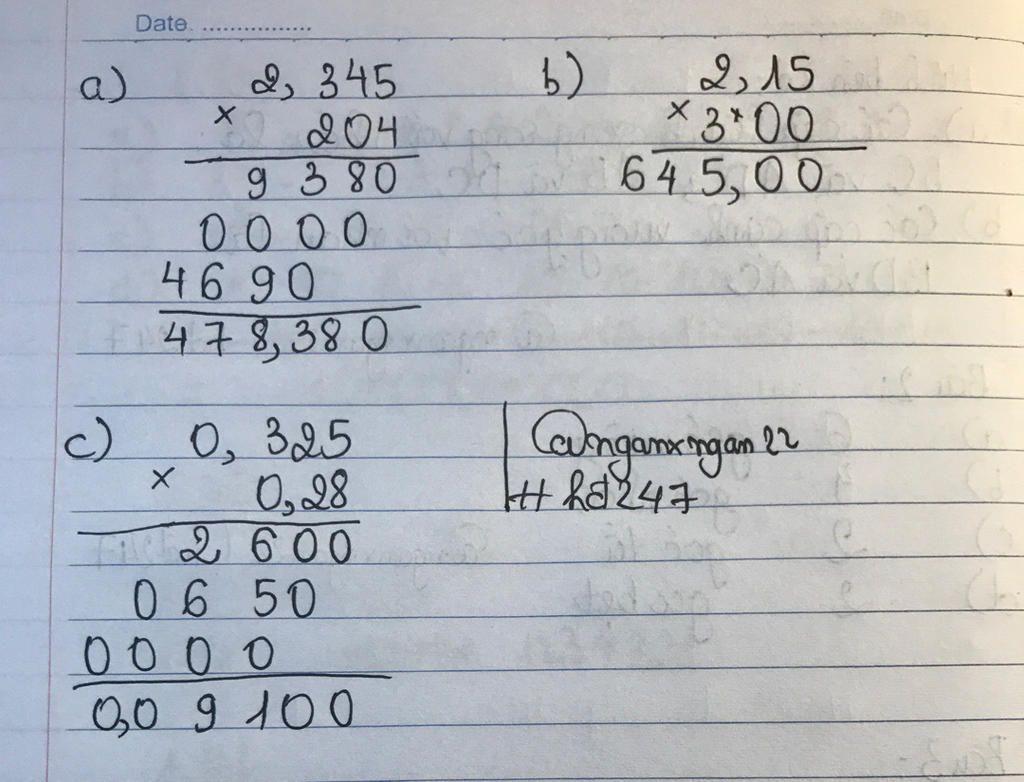 Date. ................
a) 2, 345
× 204
9 380
0 0 0 0
4 6 9 0
4 7 8,380
b) 2, 15
× 3 * 00
6 4 5, 0 0
c) 0, 325
× 0,28
2 6 0 0
0 6 50
0 0 0 0
0,0 9 100
@nganxngan22
# hd247